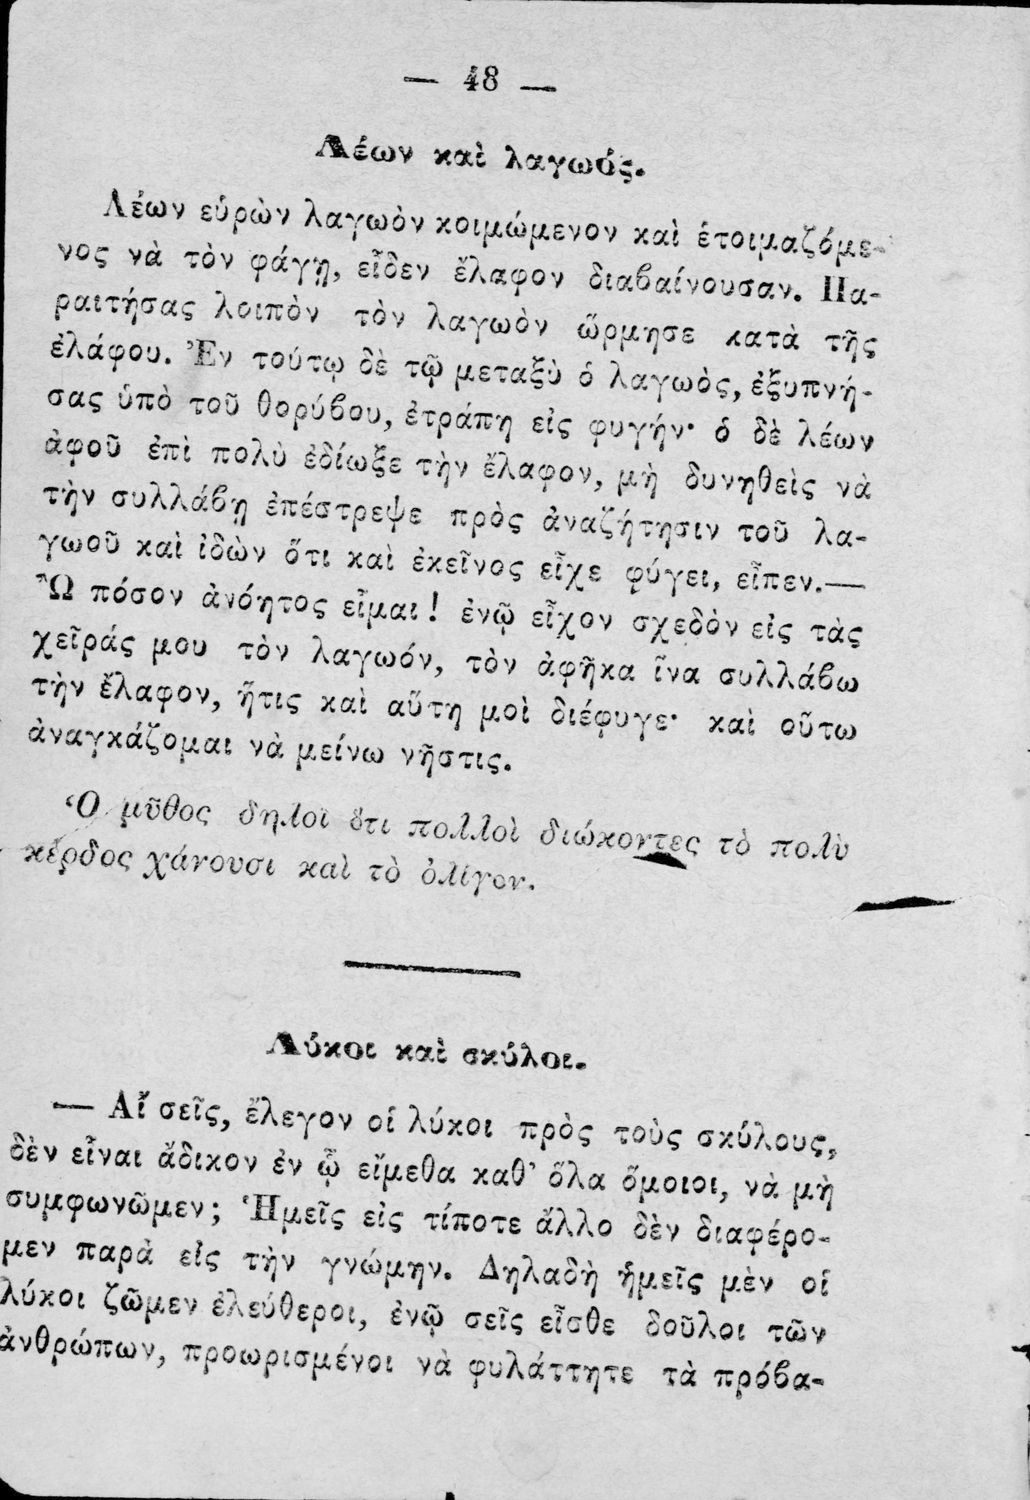 — 48 —
Λέων καὶ λαγωός.
Λέων εὑρὼν λαγωὸν κοιμώμενον καὶ ἑτοιμαζόμε-
νος νὰ τὸν φάγῃ, εἶδεν ἔλαφον διαβαίνουσαν. Πα-
ραιτήσας λοιπὸν τὸν λαγωὸν ὥρμησε κατὰ τῆς
ἐλάφου. Ἐν τούτῳ δὲ τῷ μεταξὺ ὁ λαγωὸς, ἐξυπνή-
σας ὑπὸ τοῦ θορύβου, ἐτράπη εἰς φυγήν· ὁ δὲ λέων
ἀφοῦ ἐπὶ πολὺ ἐδίωξε τὴν ἔλαφον, μὴ δυνηθεὶς νὰ
τὴν συλλάβῃ ἐπέστρεψε πρὸς ἀναζήτησιν τοῦ λα-
γωοῦ καὶ ἰδὼν ὅτι καὶ ἐκεῖνος εἶχε φύγει, εἶπεν.—
Ὢ πόσον ἀνόητος εἶμαι! ἐνῷ εἶχον σχεδὸν εἰς τὰς
χεῖράς μου τὸν λαγωόν, τὸν ἀφῆκα ἵνα συλλάβω
τὴν ἔλαφον, ἥτις καὶ αὕτη μοὶ διέφυγε· καὶ οὕτω
ἀναγκάζομαι νὰ μείνω νῆστις.
Ὁ μῦθος δηλοῖ ὅτι πολλοὶ διώκοντες τὸ πολὺ
κέρδος χάνουσι καὶ τὸ ὀλίγον.
Λύκοι καὶ σκύλοι.
— Αἴ σεῖς, ἔλεγον οἱ λύκοι πρὸς τοὺς σκύλους,
δὲν εἶναι ἄδικον ἐν ᾧ εἴμεθα καθ' ὅλα ὅμοιοι, νὰ μὴ
συμφωνῶμεν; Ἡμεῖς εἰς τίποτε ἄλλο δὲν διαφέρο-
μεν παρὰ εἰς τὴν γνώμην. Δηλαδὴ ἡμεῖς μὲν οἱ
λύκοι ζῶμεν ἐλεύθεροι, ἐνῷ σεῖς εἶσθε δοῦλοι τῶν
ἀνθρώπων, προωρισμένοι νὰ φυλάττητε τὰ πρόβα-